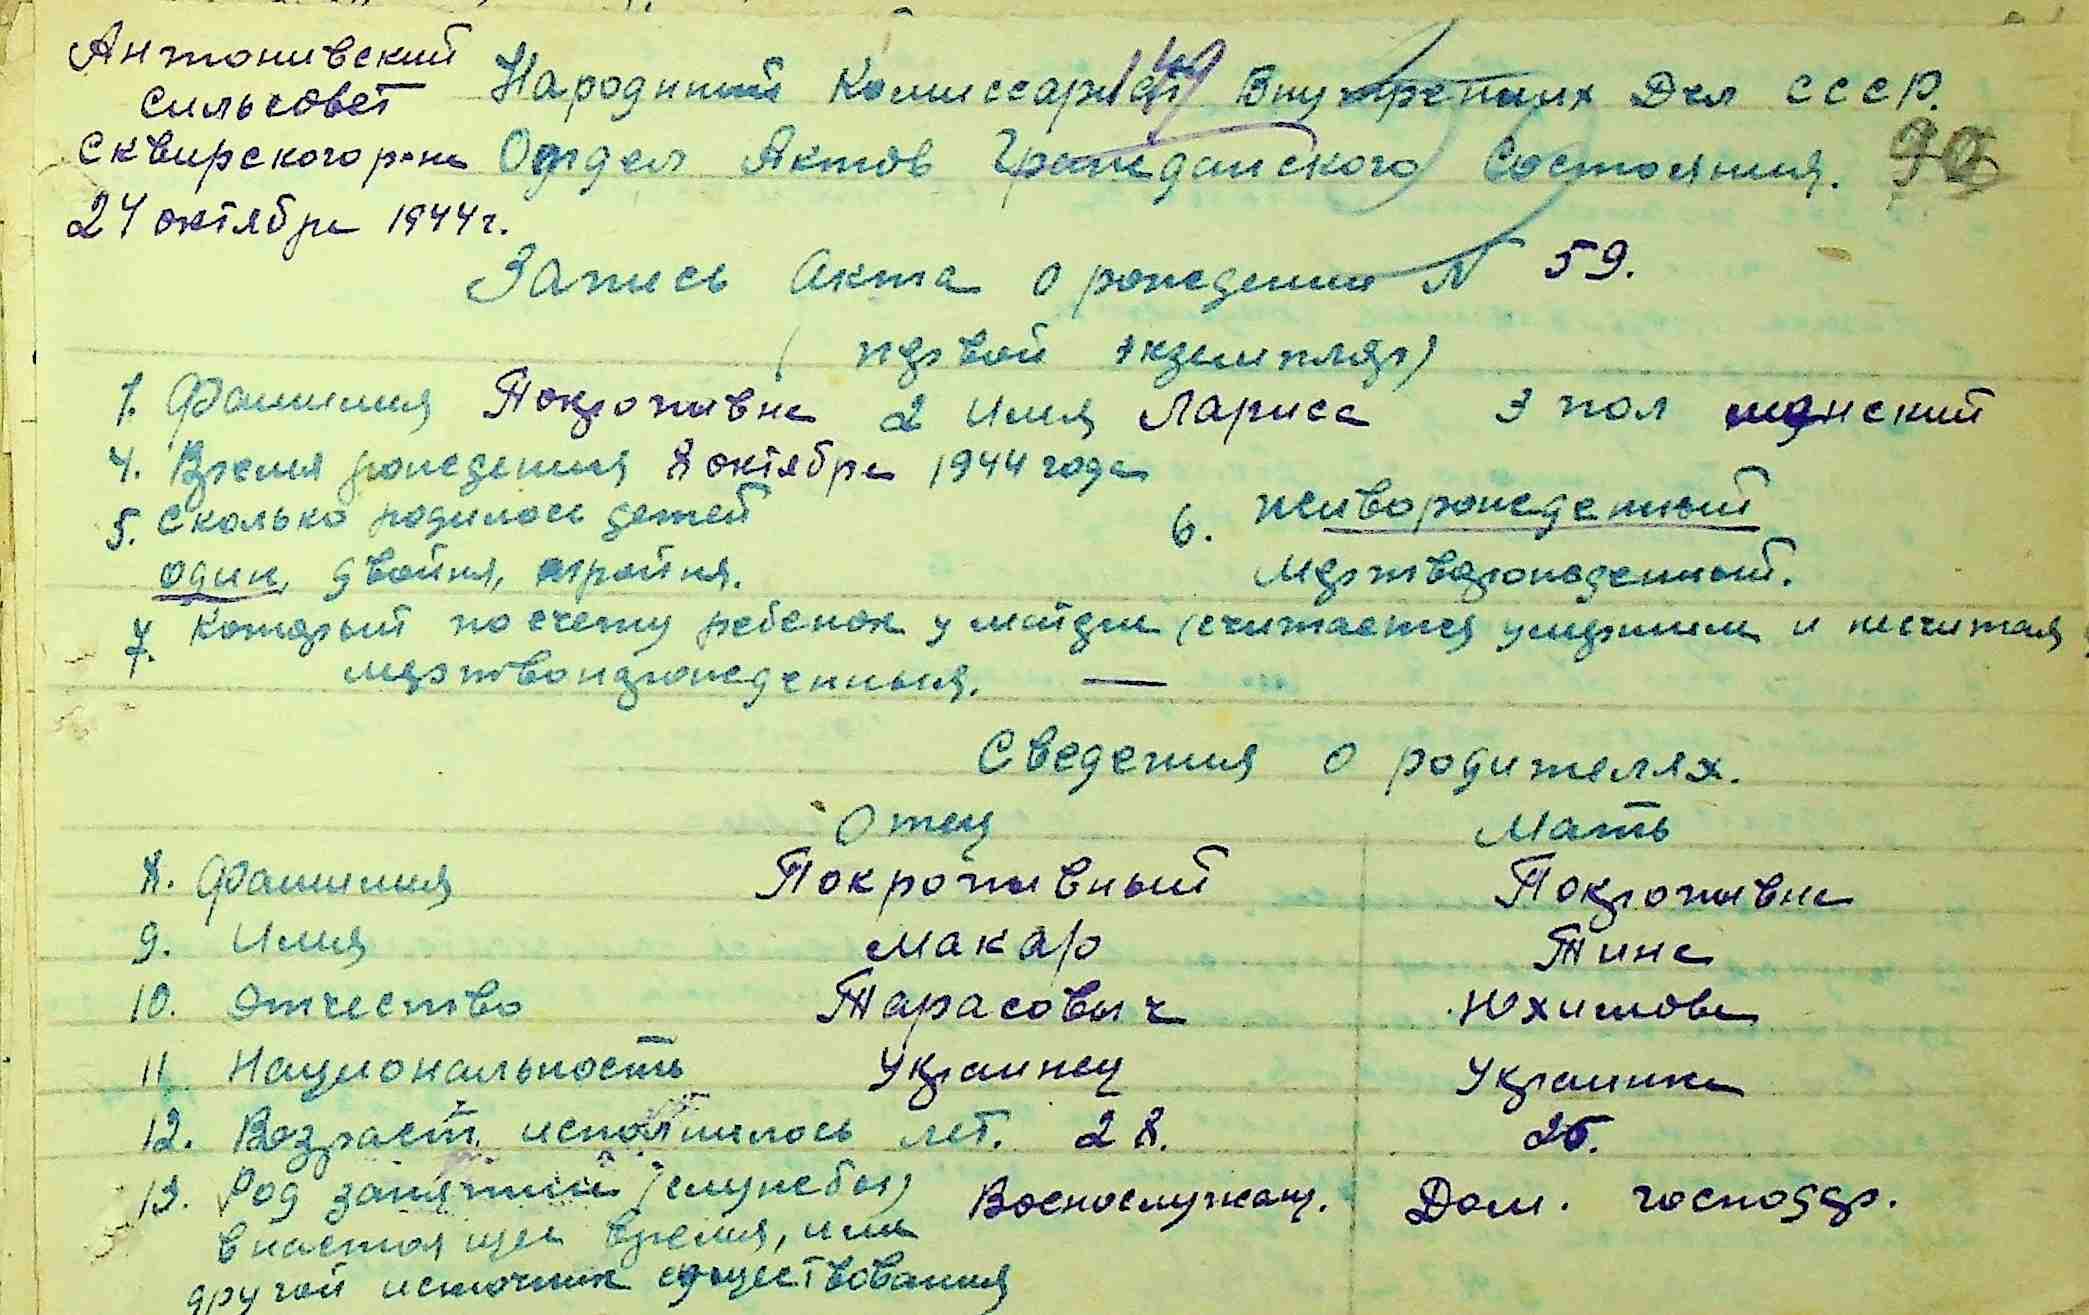 Антонивский
сильсовет
Сквирского р-на
24 октября 1944 г.
149
Народний Комиссариат Внутрених Дел СССР.
Отдел Актов Гражданского Состояния. 90
Запись акта о рождении N 59.
(первой экземпляр)
1. Фамилия Покропивна 2 Имя Лариса 3 пол женский
4. Время рождения 8 октября 1944 года
5. Сколько родилось детей
один, двойня, тройня.
6. живорожденный
мертворожденный.
7. Который по счету ребенок у матери (считается умершим и несчитая
мертворожденных. —
Сведения о родителях.
Отец Мать
8. Фамилия Покропивный Покропивна
9. Имия Макар Тина
10. Отчество Тарасовыч Юхимовна
11 Национальность Украинец Украинка
12. Возраст, исполнилось лет. 28. 26.
13. Род занятий (службы) Военослужащ. Дом. господар.
в настоящее время, или
другой источник существования